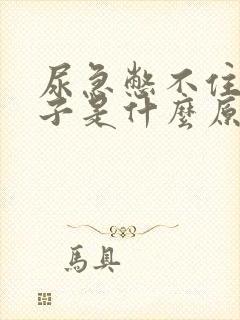 尿急憋不住
子是什麼原
馬具